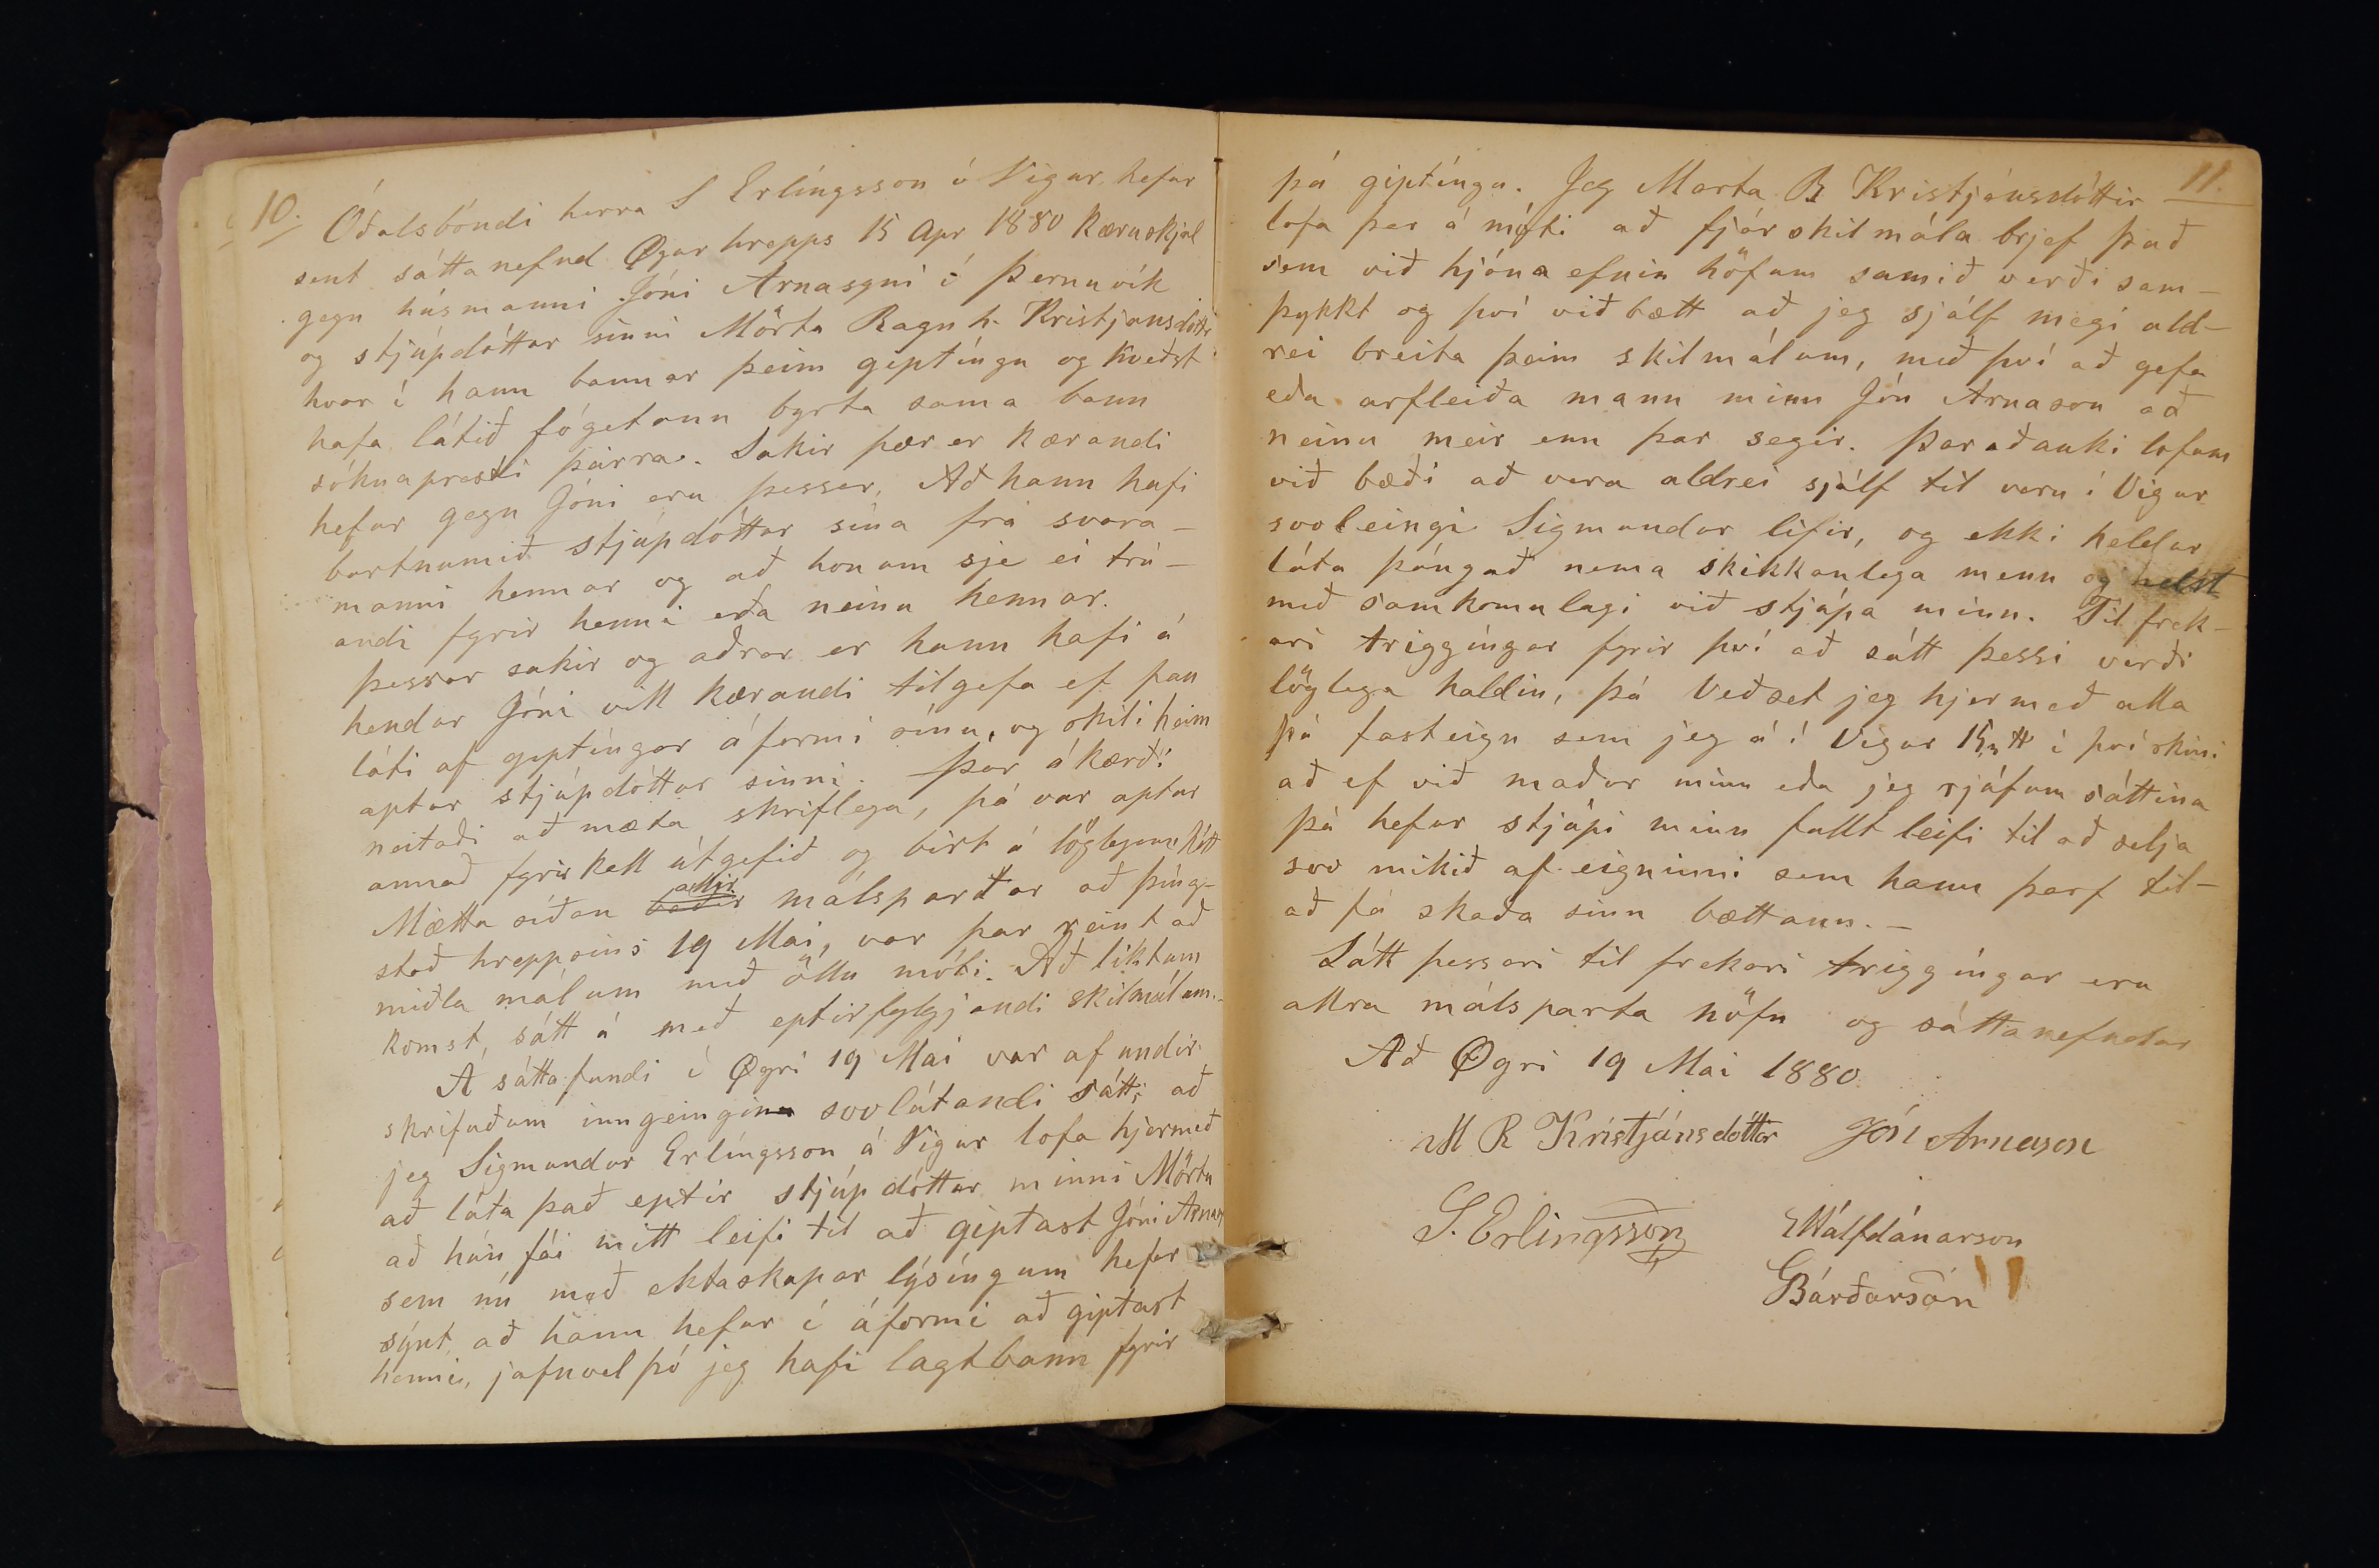 10.
Óðalsbóndi herra S Erlíngsson í Vigur hefur
sent sáttanefnd Øgurhrepps 15 Apr 1880 kæruskjal
gegn húsmanni Jóni Arnasyni í Þernuvík
og stjúpdóttur sinni Mörtu Ragnh. Kristjansdóttr
hvar í hann bannar þeim giptíngu og kveðst
hafa látið fógetann byrta sama bann
sóknapresti þeirra. Sakir þær er kærandi
hefur gegn Jóni eru þessar, Að hann hafi
burtnumið stjúpdóttur sína frá svara-
manni hennar og að honum sje ei trú-
andi fyrir henni eða neinu hennar.
þessar sakir og aðrar er hann hafi á
hendur Jóni vill kærandi tilgefa ef þau
láti af giptíngar áformi sínu, og skili heim
aptur stjúpdóttur sinni. Þar ákærði
neitaði að mæta skriflega, þá var aptur
annað fyrirkall útgefið og birt á löglegann hátt
Mættu síðan allir málspartar að þíng-
stað hreppsins 19 Mai, var þar reint að
miðla málum með öllu móti. Að liktum
komst, sátt á með eptirfylgjandi skilmálum.-
A sáttafundi í Øgri 19 Mai var af undir
skrifuðum inngeingin svolátandi sátt; að
jeg Sigmundur Erlíngsson á Vigur lofa hjermeð
að láta það eptir stjúpdóttur minni Mörtu
að hún fái mitt leifi til að giptast Jóni Arnas
sem nú með ektaskapar lýsíngum hefur
sýnt að hann hefur í áformi að giptast
henni, jafnvel þó jeg hafi lagt bann fyrir
11.
þá giptíngu. Jeg Marta R Kristjánsdóttir
lofa þar á móti að fjárskilmála brjef það
sem við hjóna efnin höfum samið verði sam-
þykkt og því viðbætt að jeg sjálf megi ald-
rei breita þeim skilmálum, með því að gefa
eða arfleiða mann minn Jón Arnason að
neinu meir enn þar segir. Þaraðauki lofum
við bæði að vera aldrei sjálf til veru í Vigur
svoleingi Sigmundur lifir, og ekki heldur
láta þángað nema skikkanlega menn og helst
með samkomulagi við stjúpa minn. Til frek-
ari triggíngar fyrir því að sátt þessi verði
löglega haldin, þá Veðset jeg hjermeð alla
þá fasteign sem jeg á í Vigur í því skini
að ef við maður minn eða jeg rjúfum sáttina
þá hefur stjúpi minn fullt leifi til að selja
svo mikið af eigninni sem hann þarf til-
að fá skaða sinn bættann.-
Sátt þessari til frekari triggíngar eru
allra málsparta nöfn og sáttanefndar
Að Øgri 19 Mai 1880
M R Kristjánsdóttir Jón Arnason
S. Erlingsson Hálfdánarson
Bárðarson